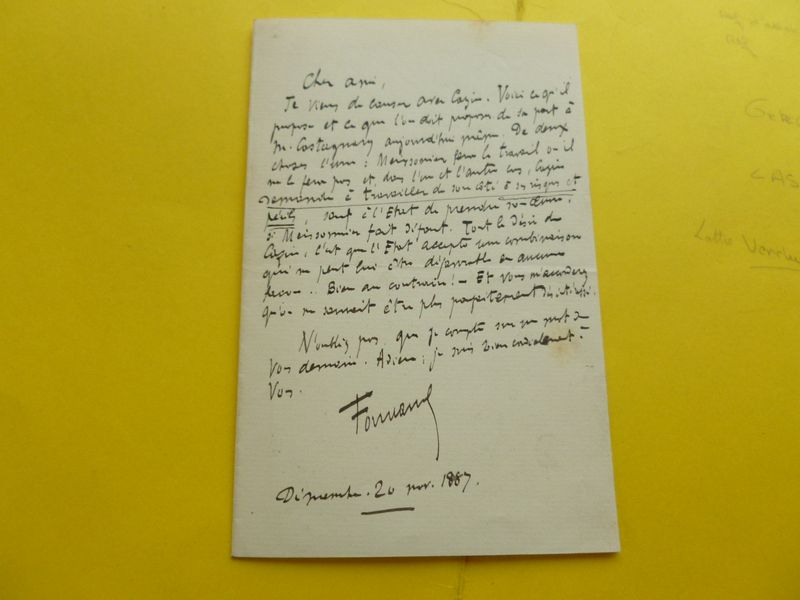 Cher ami,
Je viens de causer avec Cazin. Voici ce qu'il
propose et ce que l'on doit proposer de sa part à
M. Castagnary aujourd'hui même. De deux
choses l'une : Meissonier fera le travail ou il
ne le fera pas et, dans l'un et l'autre cas, Cazin
demande à travailler de son côté à ses risques et
périls, sauf à l'Etat de prendre son œuvre,
si Meissonnier fait défaut. Tout le désir de
Cazin, c'est que l'Etat accepte une combinaison
qui ne peut lui être défavorable en aucune
façon .. Bien au contraire ! - Et vous m'accorderez
qu'on ne saurait être plus parfaitement désintéressé.
N'oubliez pas que je compte sur un mot de
vous demain. Adieu ; je suis bien cordialement à
vous.
Fourcaud
Dimanche. 20 nov. 1887.
Lettre